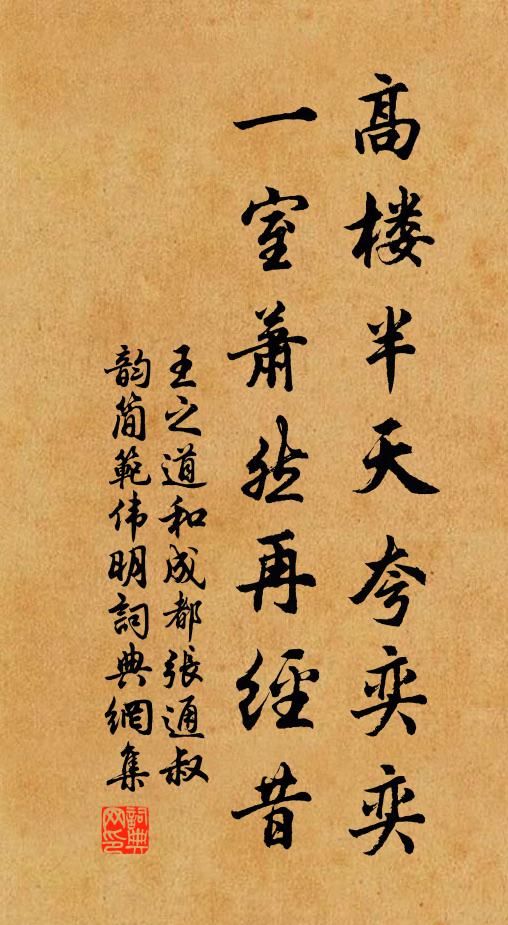 高楼半天夸奕奕
一室萧然再經昔
王之道和成都張通叔
韵简範伟明詞典網集
詞典网印